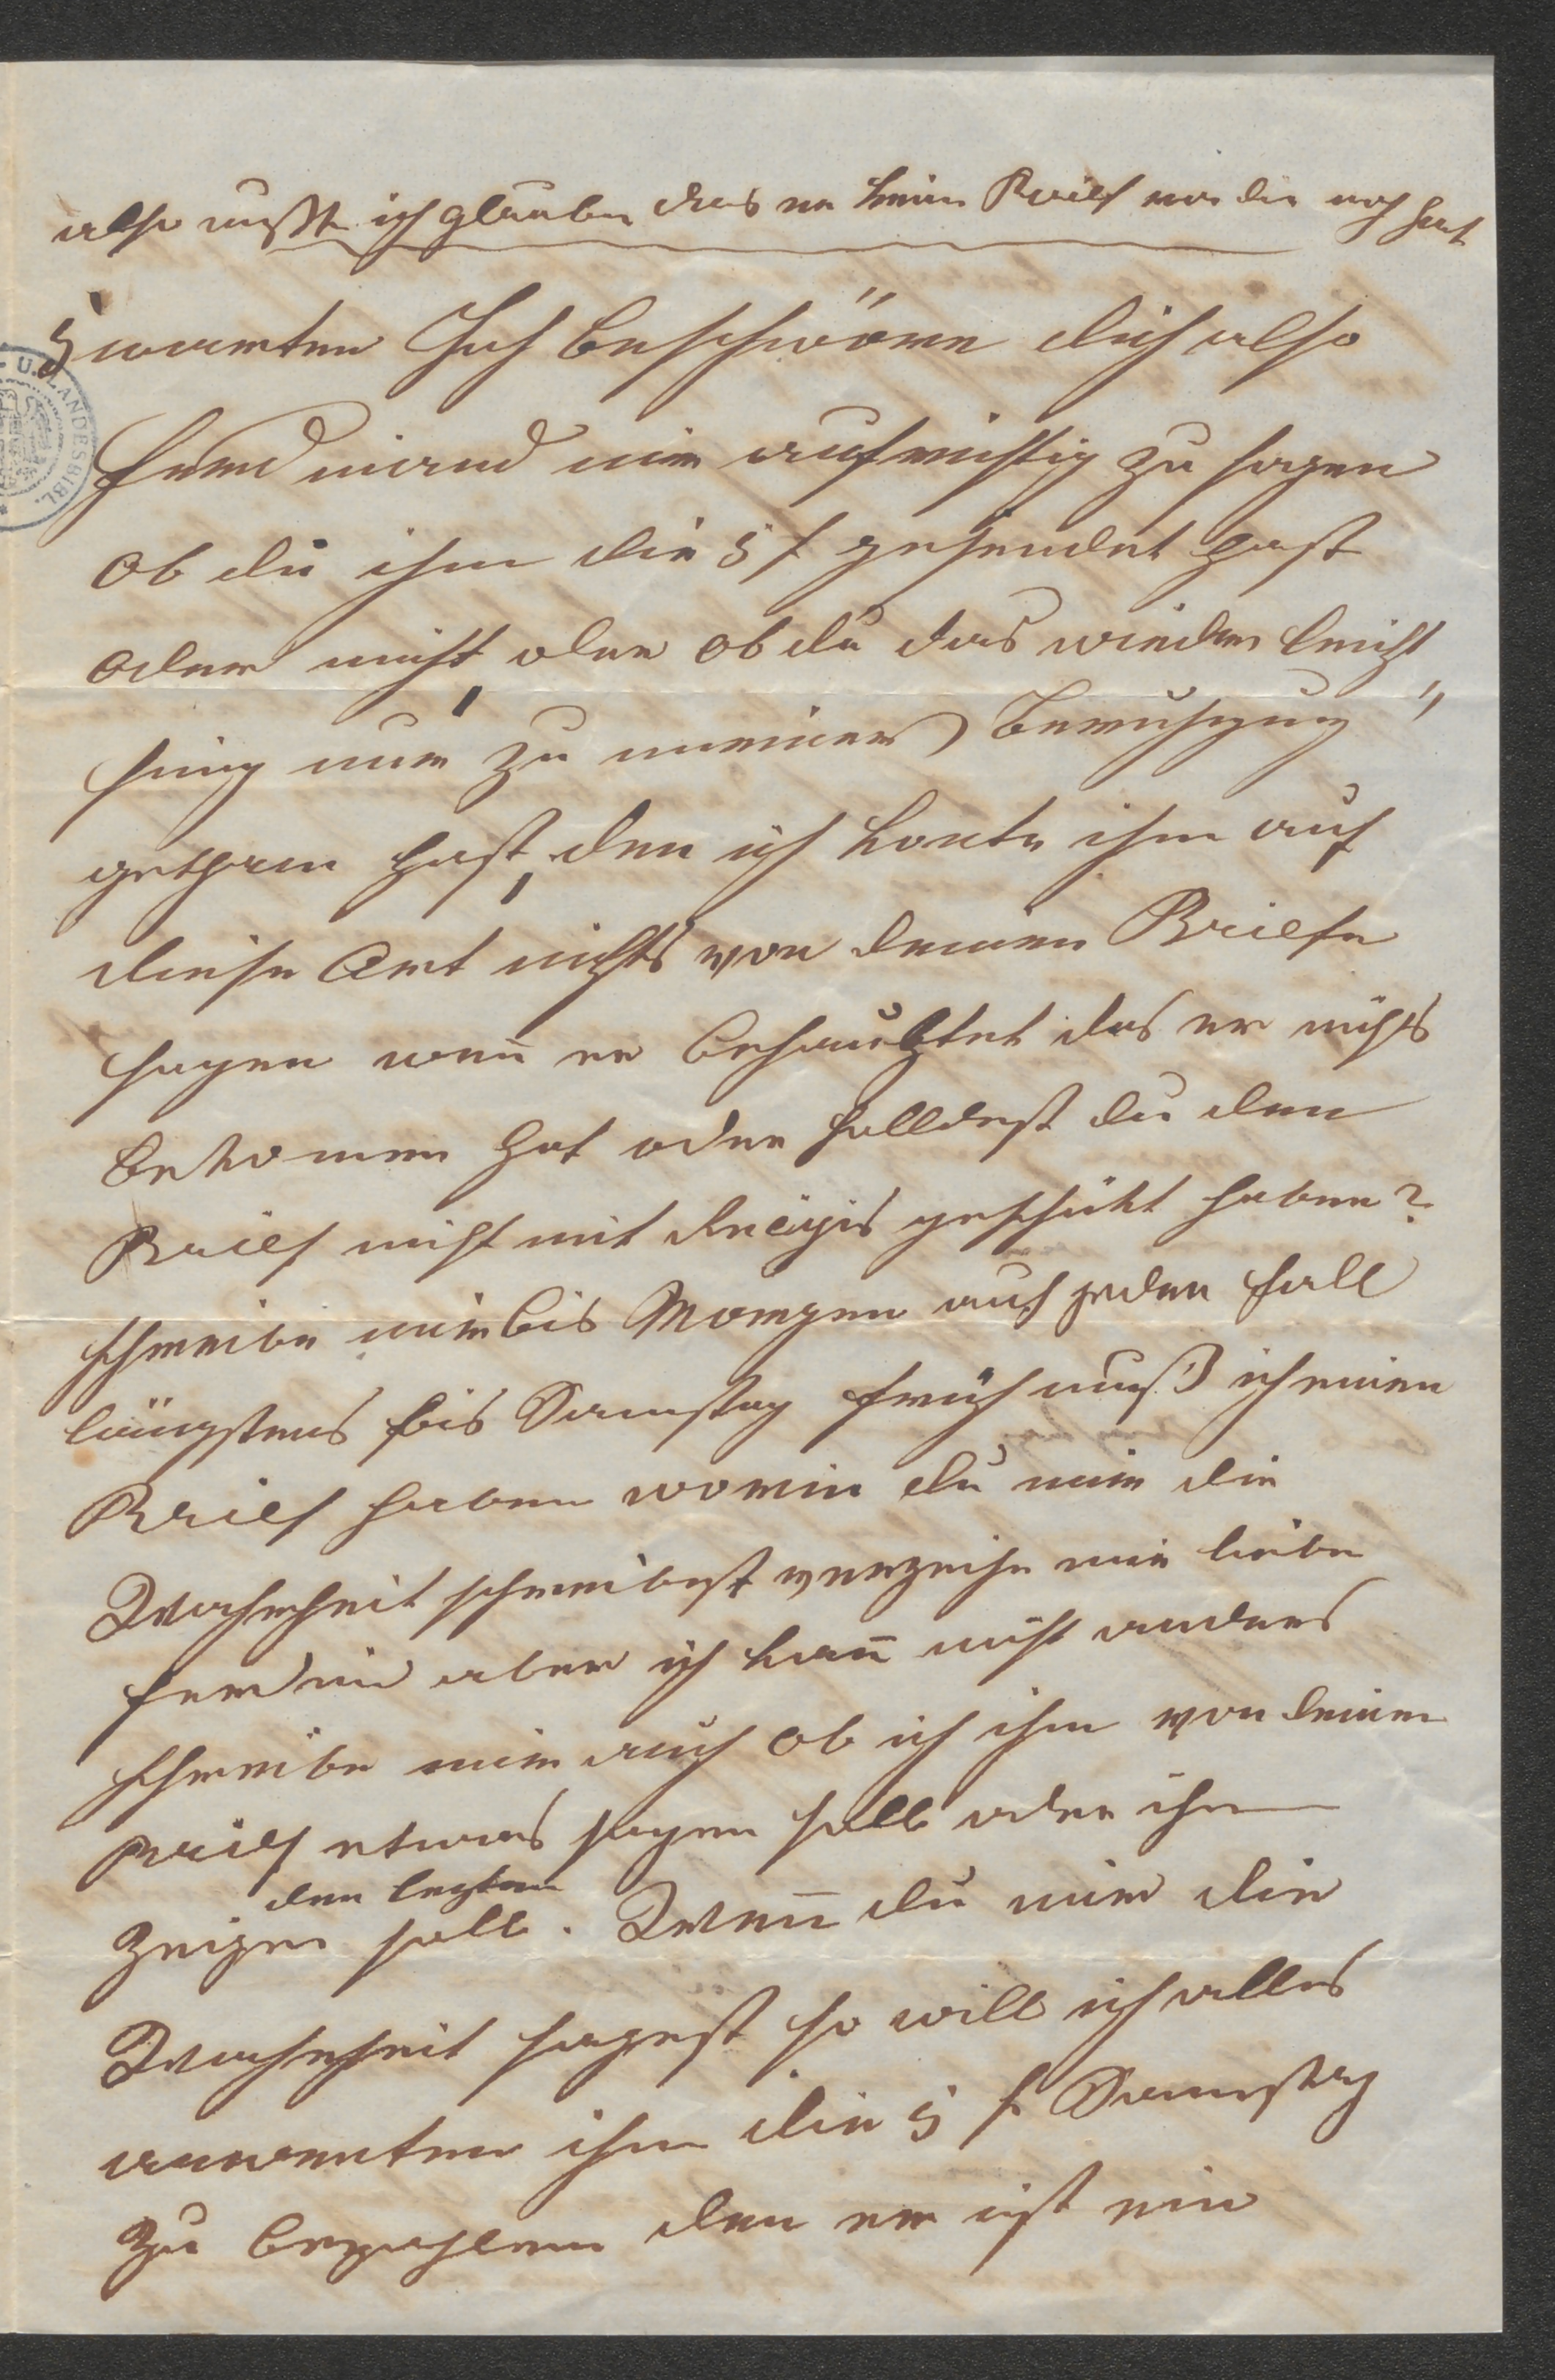 also mußte ich glauben das er keinen Brief von dir noch hat
warten Ich beschwöre dich also
Ferdinand mir aufrichtig zu sagen
ob du ihm die 5 f gesendet hast
oder nicht, oder ob du das wieder leicht
sinig nur zu meiner Beruhigung
gethan hast, den ich konte ihm auf
diese Art nichts von deinen Briefe
sagen wen̄ er behaubtet das er nichts
bekomen hat oder solldest du den
Brief nicht mit geschikt haben?
Schreibe mir bis Morgen auf jeden Fall
längstens bis Samstag früh muß ich einen
Brief haben worin du mir die
Wahrheit schreibest verzeihe mir lieber
Ferdinand aber ich kan̄ nicht anders
Schreibe mir auch ob ich ihm von deinen
Brief etwas sagen soll oder ihm
den lezten
zeigen soll. Wen̄ du mir die
Wahrheit sagest so will ich alles
anwenten ihm die 5 f Samstag
zu bezahlen den er ist ein
U. LANDESBIBL.